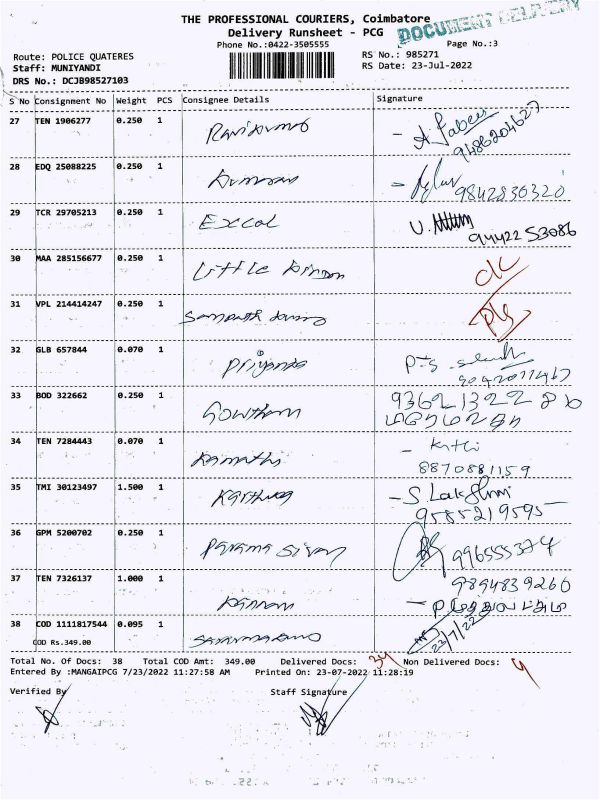 THE PROFESSIONAL COURIERS, Coimbatore
Delivery Runsheet - PCG
DOCUMENT DELIVERY
Phone No.:0422-3505555
Page No.:3
Route: POLICE QUATERES
RS No.: 985271
Staff: MUNIYANDI
RS Date: 23-Jul-2022
DRS No.: DCJB98527103
S No Consignment No Weight PCS Consignee Details Signature
27 TEN 1906277 0.250 1 Ravikumar
9486204627
28 EDQ 25088225 0.250 1
9842836320
29 TCR 29705213 0.250 1 Excel U.
94422 53086
30 MAA 285156677 0.250 1 Little
31 VPL 214414247 0.250 1 Sampath
32 GLB 657844 0.070 1 Priyanka P-S
33 BOD 322662 0.250 1 Gowtham 9362132286
34 TEN 7284443 0.070 1 Kamathi
8870881159
35 TMI 30123497 1.500 1 Karthika - S. Lakshmi
9585219595
36 GPM 5200702 0.250 1 Parama Sivan
996555374
37 TEN 7326137 1.000 1 Kannan 9894839260
38 COD 1111817544 0.095 1 Saravanan
23/7/22
COD Rs.349.00
Total No. Of Docs: 38 Total COD Amt: 349.00 Delivered Docs: 34 Non Delivered Docs: 4
Entered By :MANGAIPCG 7/23/2022 11:27:58 AM Printed On: 23-07-2022 11:28:19
Verified By Staff Signature